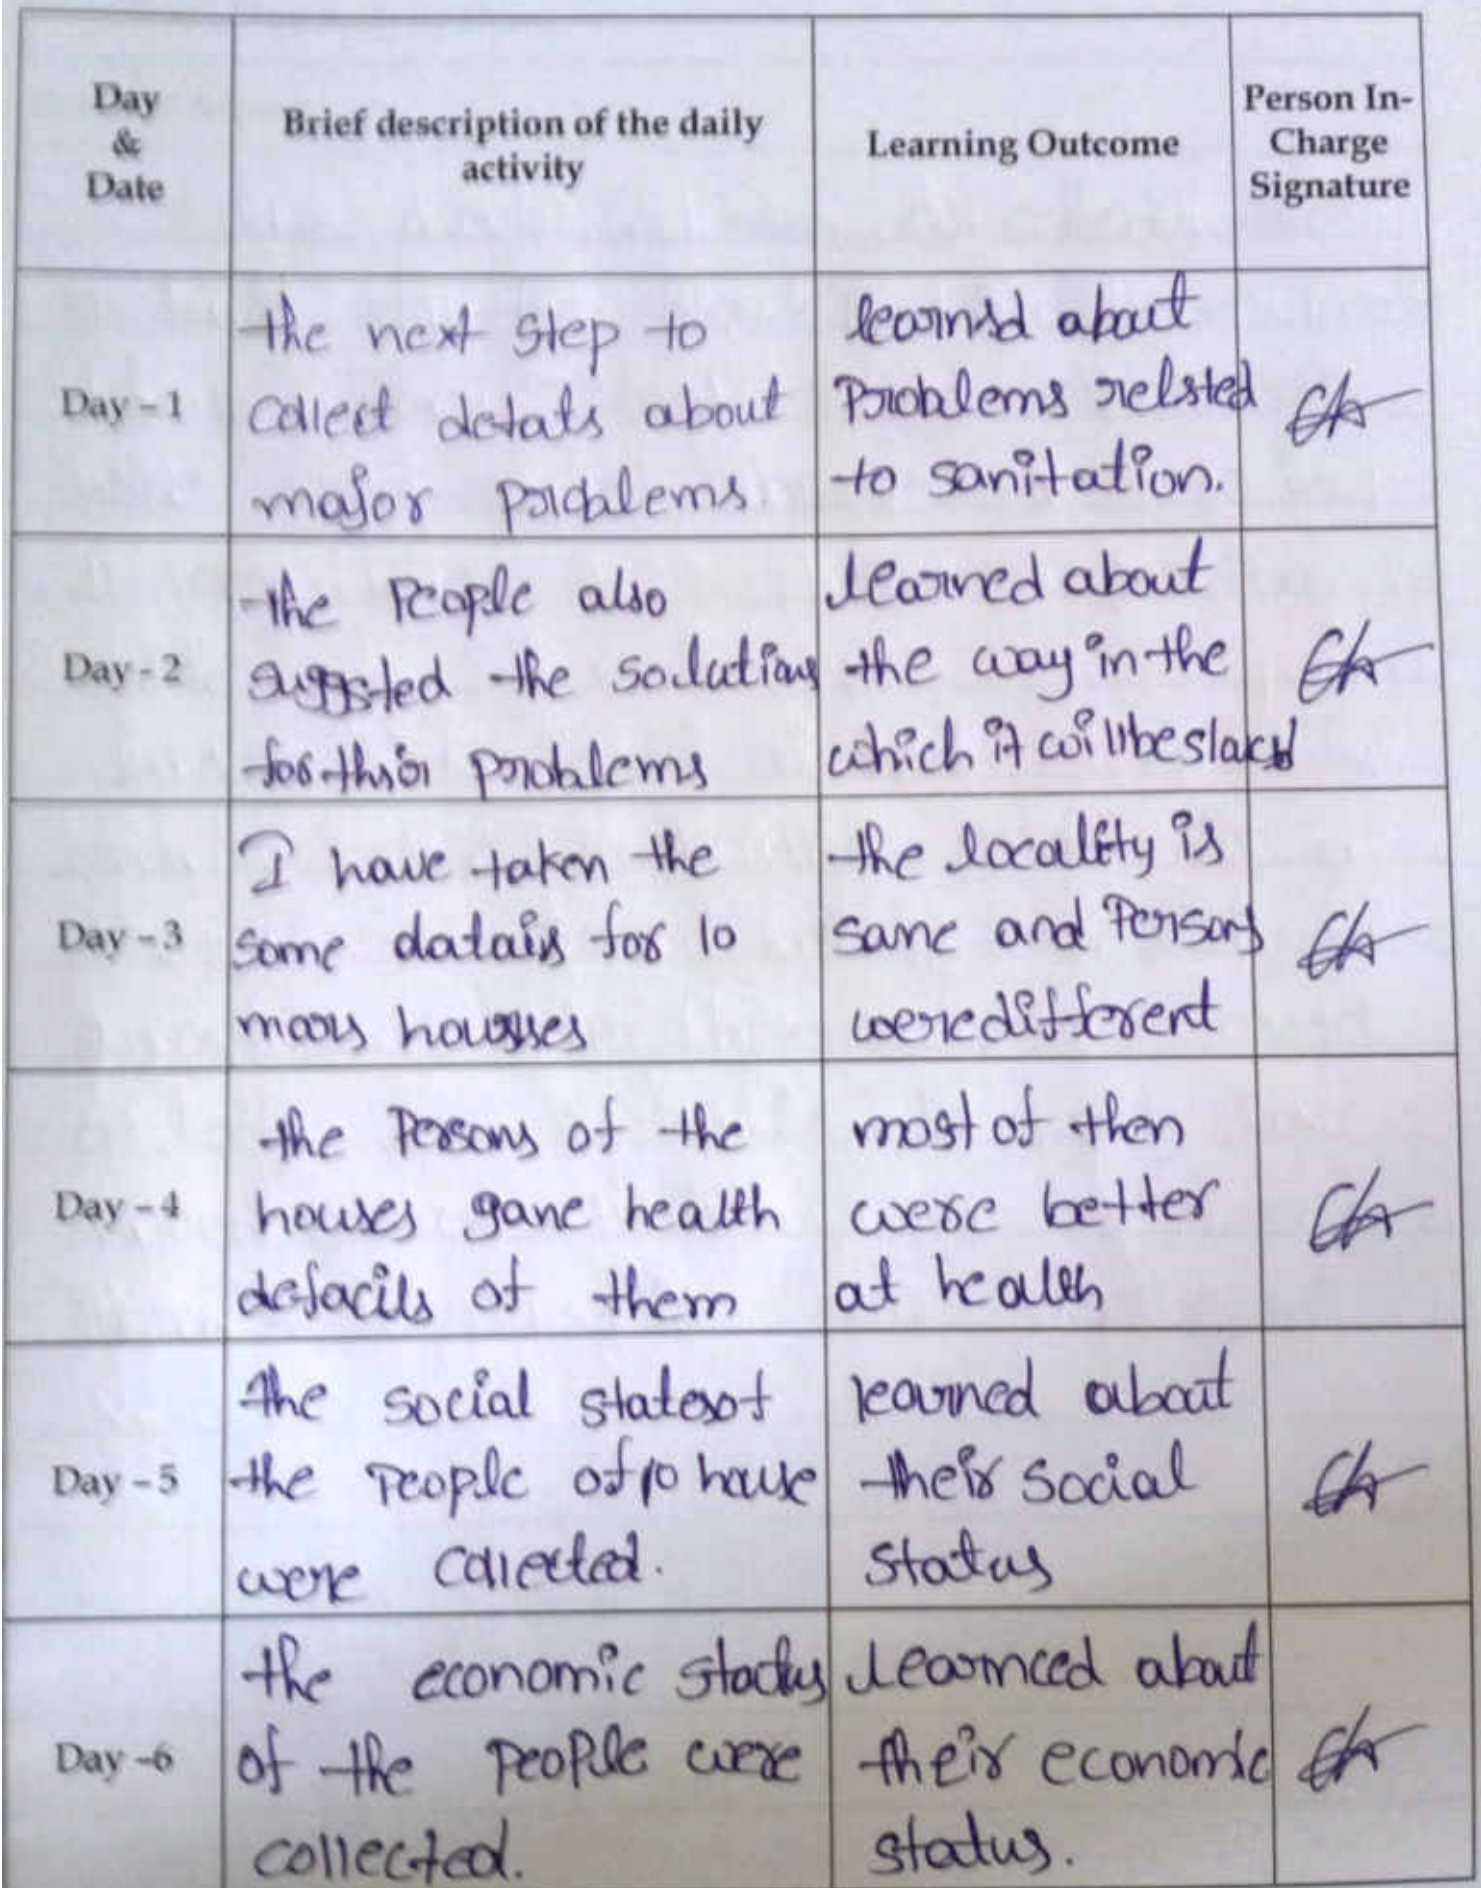 Day
&
Date
Brief description of the daily
activity
Learning Outcome
Person In-
Charge
Signature
Day - 1
the next step to
collect detats about
major problems
learnsd about
Problems relsted
to sanitation.
Day - 2
the People also
suggsted the solutions
for thsir problems
learned about
the way in the
which it will be
Day - 3
I have taken the
some datais for 10
houses
the locality is
same and Persons
were different
Day - 4
the Persons of the
houses gane health
of them
most of then
were better
at health
Day - 5
the social states of
the People of 10 house
were collected.
learned about
their social
status
Day - 6
the economic status
of the People were
collected.
learnced about
their economic
status.